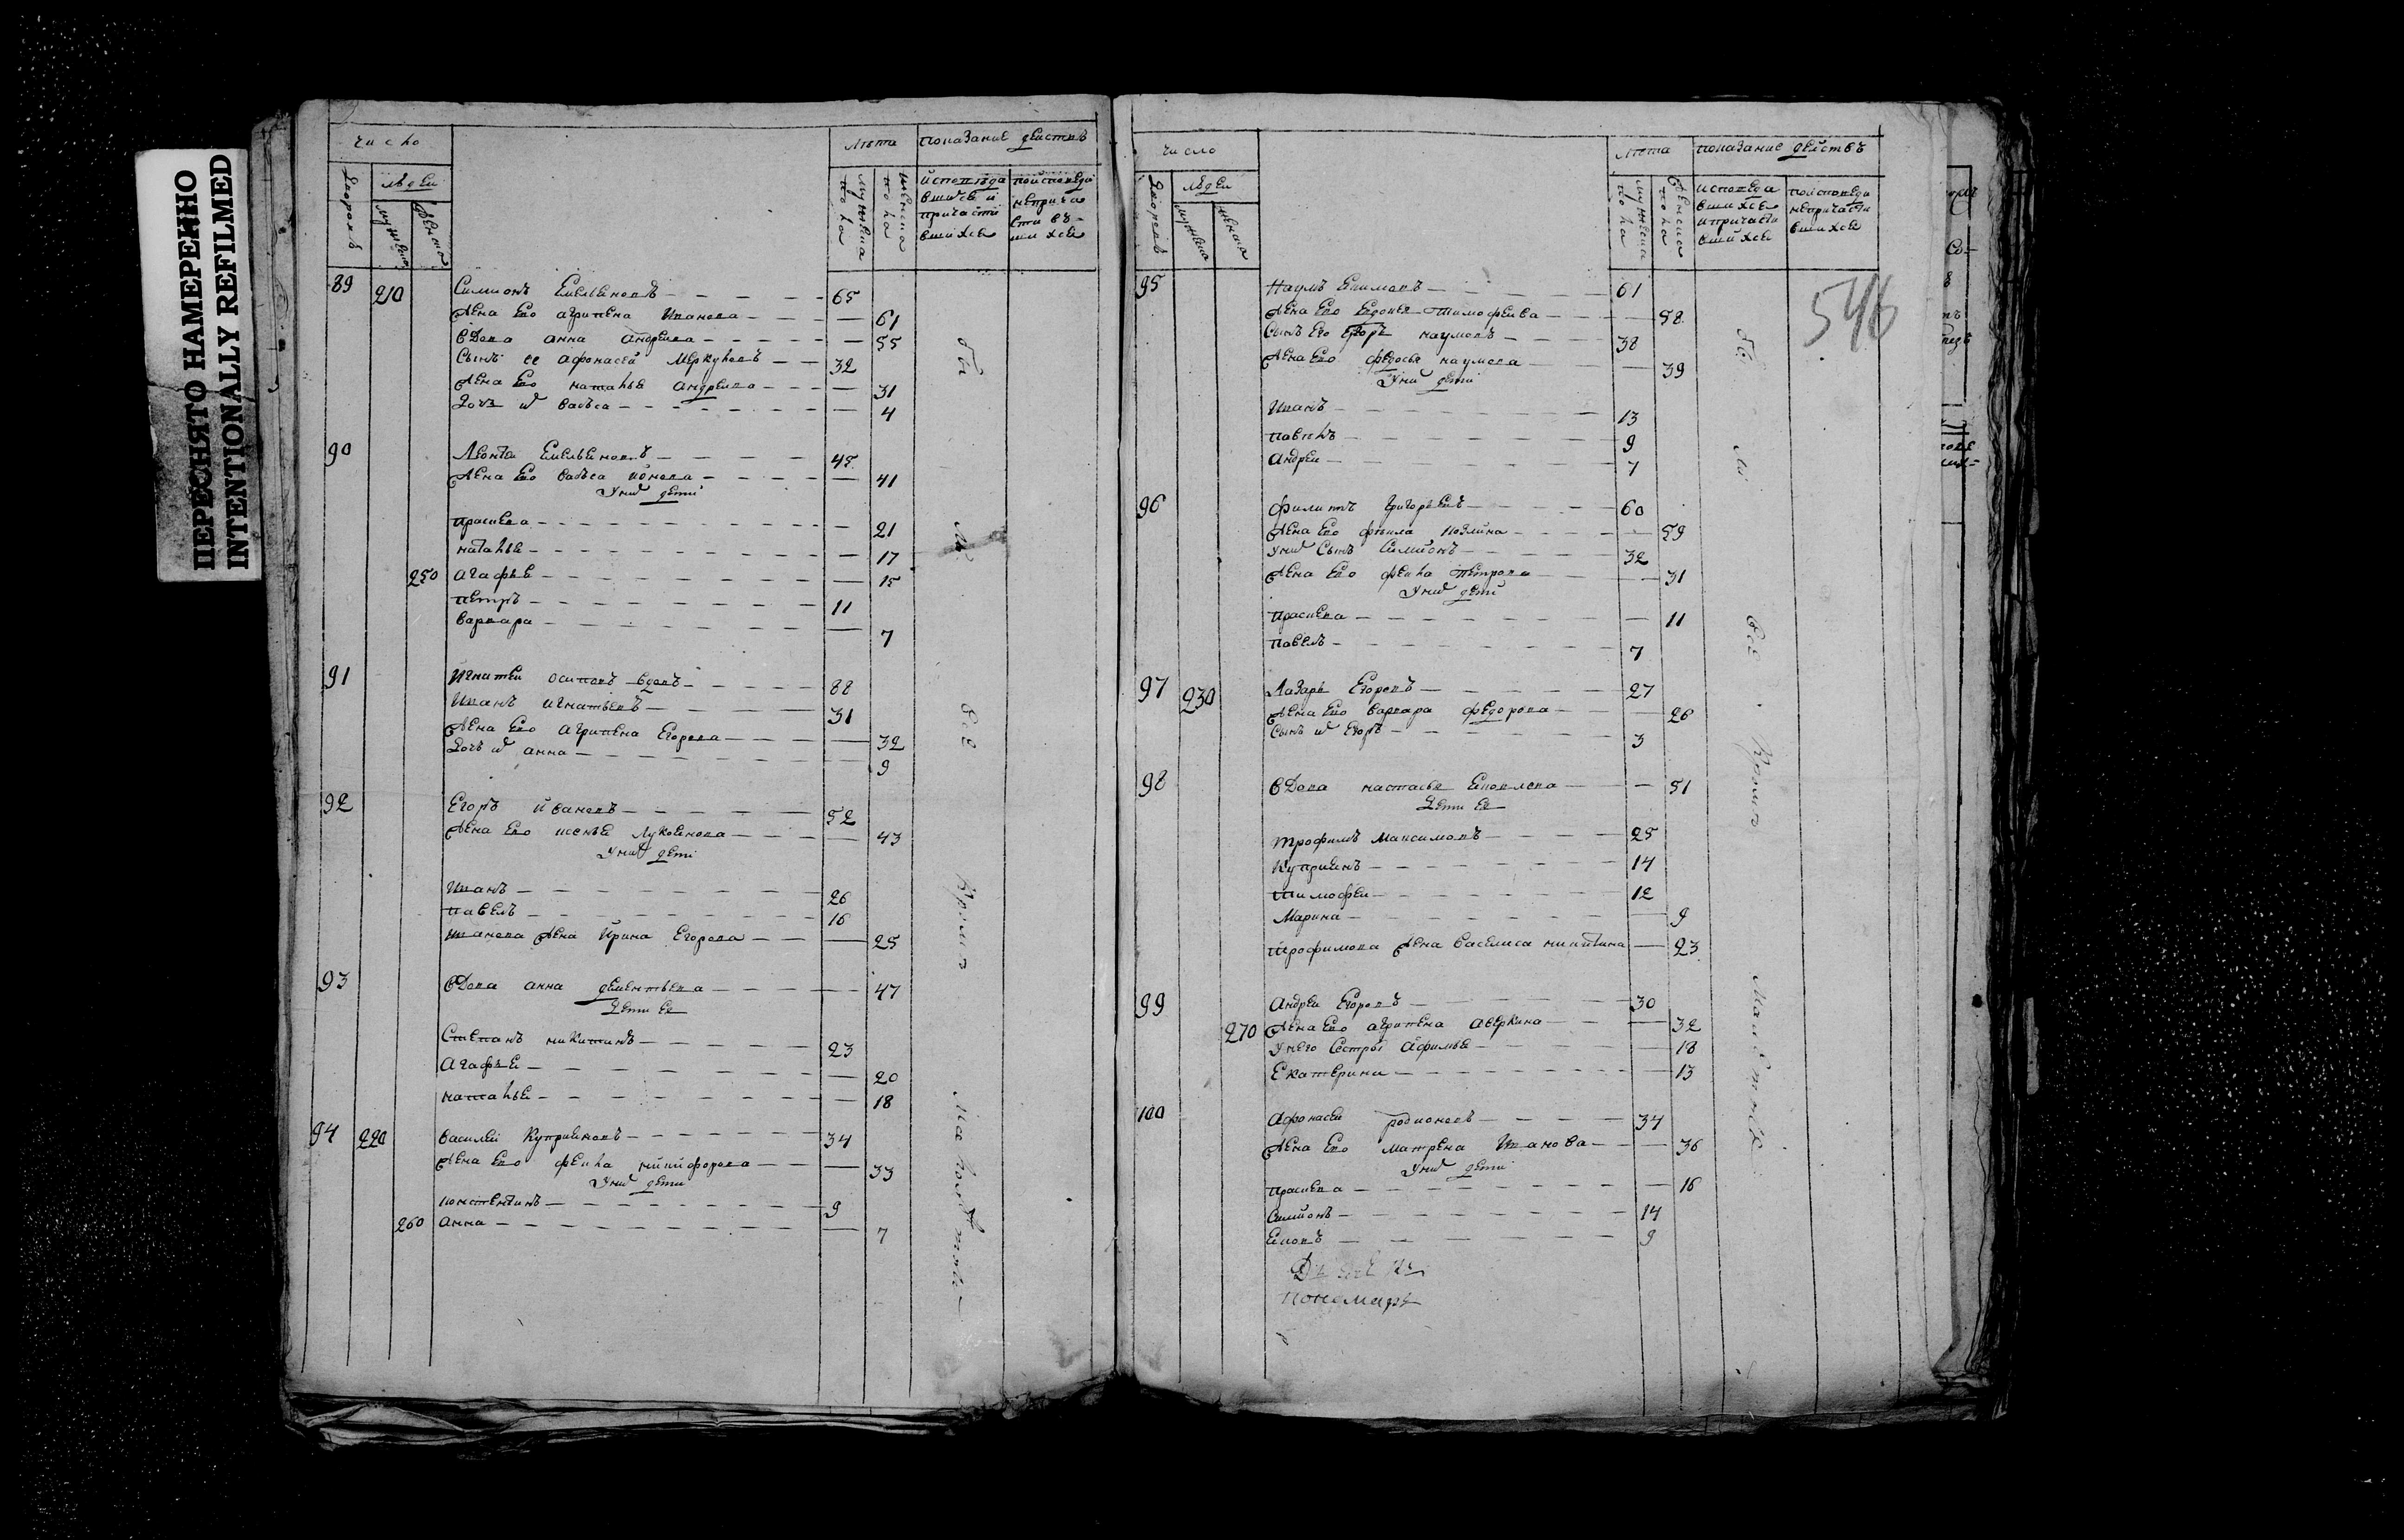 ПЕРЕСНЯТО НАМЕРЕННО
INTENTIONALLY REFILMED
число
дворовъ
людеи
мужеска
женска
Лѣта
мужеска пола
женска пола
показание действъ
исповѣда
вшихся и
причасти
вшихся
поисповеди
неприча
стивъ-
шихся
89 210 Симионъ Емельяновъ 65
Жена Ево агрипена Иванова 61
вДова анна андреива 55
Сынъ ее афонасей Меркуловъ 32
Жена Ево наталья андреива 31
Дочь 4
90 Леонтей Емельяновъ 45
Жена Ево 41
У них дети
прасковя 21
наталья 17
250 агафья 15
петръ 11
варвара 7
91 Игнатеи осиповъ вдовъ 88
Иванъ игнатьевъ 31
Жена Ево агрипена Егорова 32
Дочь их анна 9
92 Егоръ ивановъ 52
Жена Ево ксенья Лукоянова 43
У них дети
Иванъ 26
павелъ 16
Иванова Жена Ирина Егорова 25
93 вДова анна дементьева 47
Дети Ее
Степанъ никитинъ 23
Агафья 20
наталья 18
94 220 василеи Куприяновъ 34
Жена Ево фекла никифорова 33
У них дети
констентинъ 9
260 анна 7
бы
ли
все
Кромѣ
число
дворовъ
людеи
мужеска
женска
Лѣта
мужеска пола
женска пола
показание действъ
исповеда
вшихся
ипричасти
вшихся
поисповеди
непричасти
вшихся
546
95 Наумъ Екимовъ 61
Жена Ево Евдокея Тимофеива 58
Сынъ Его Егоръ наумовъ 38
Жена Ево федосья наумова 39
У них дети
Иванъ 13
павилъ 9
андреи 7
96 филипъ григорьевъ 60
Жена Ево фекла 59
у них Сынъ Симионъ 32
Жена Ево фекла петрова 31
У них дети
прасковя 11
павелъ 7
97 230 Лазарь Егоровъ 27
Жена Ево варвара федорова 26
Сынъ их Егоръ 3
98 вДова настасья Яковлева 51
Дети Ее
трофимъ Максимовъ 25
Куприянъ 14
тимофеи 12
Марина 9
трофимова Жена василиса никитина 23
99 Андреи Егоровъ 30
270 Жена Ево агрипена аверкина 32
У нево Сестры афимья 18
Екатерина 13
100 афонасеи родионовъ 34
Жена Ево матрена Иванова 36
У них дети
прасковя 16
Симионъ 14
Яковъ 9
пономаря
бы
ли
все
Кромѣ